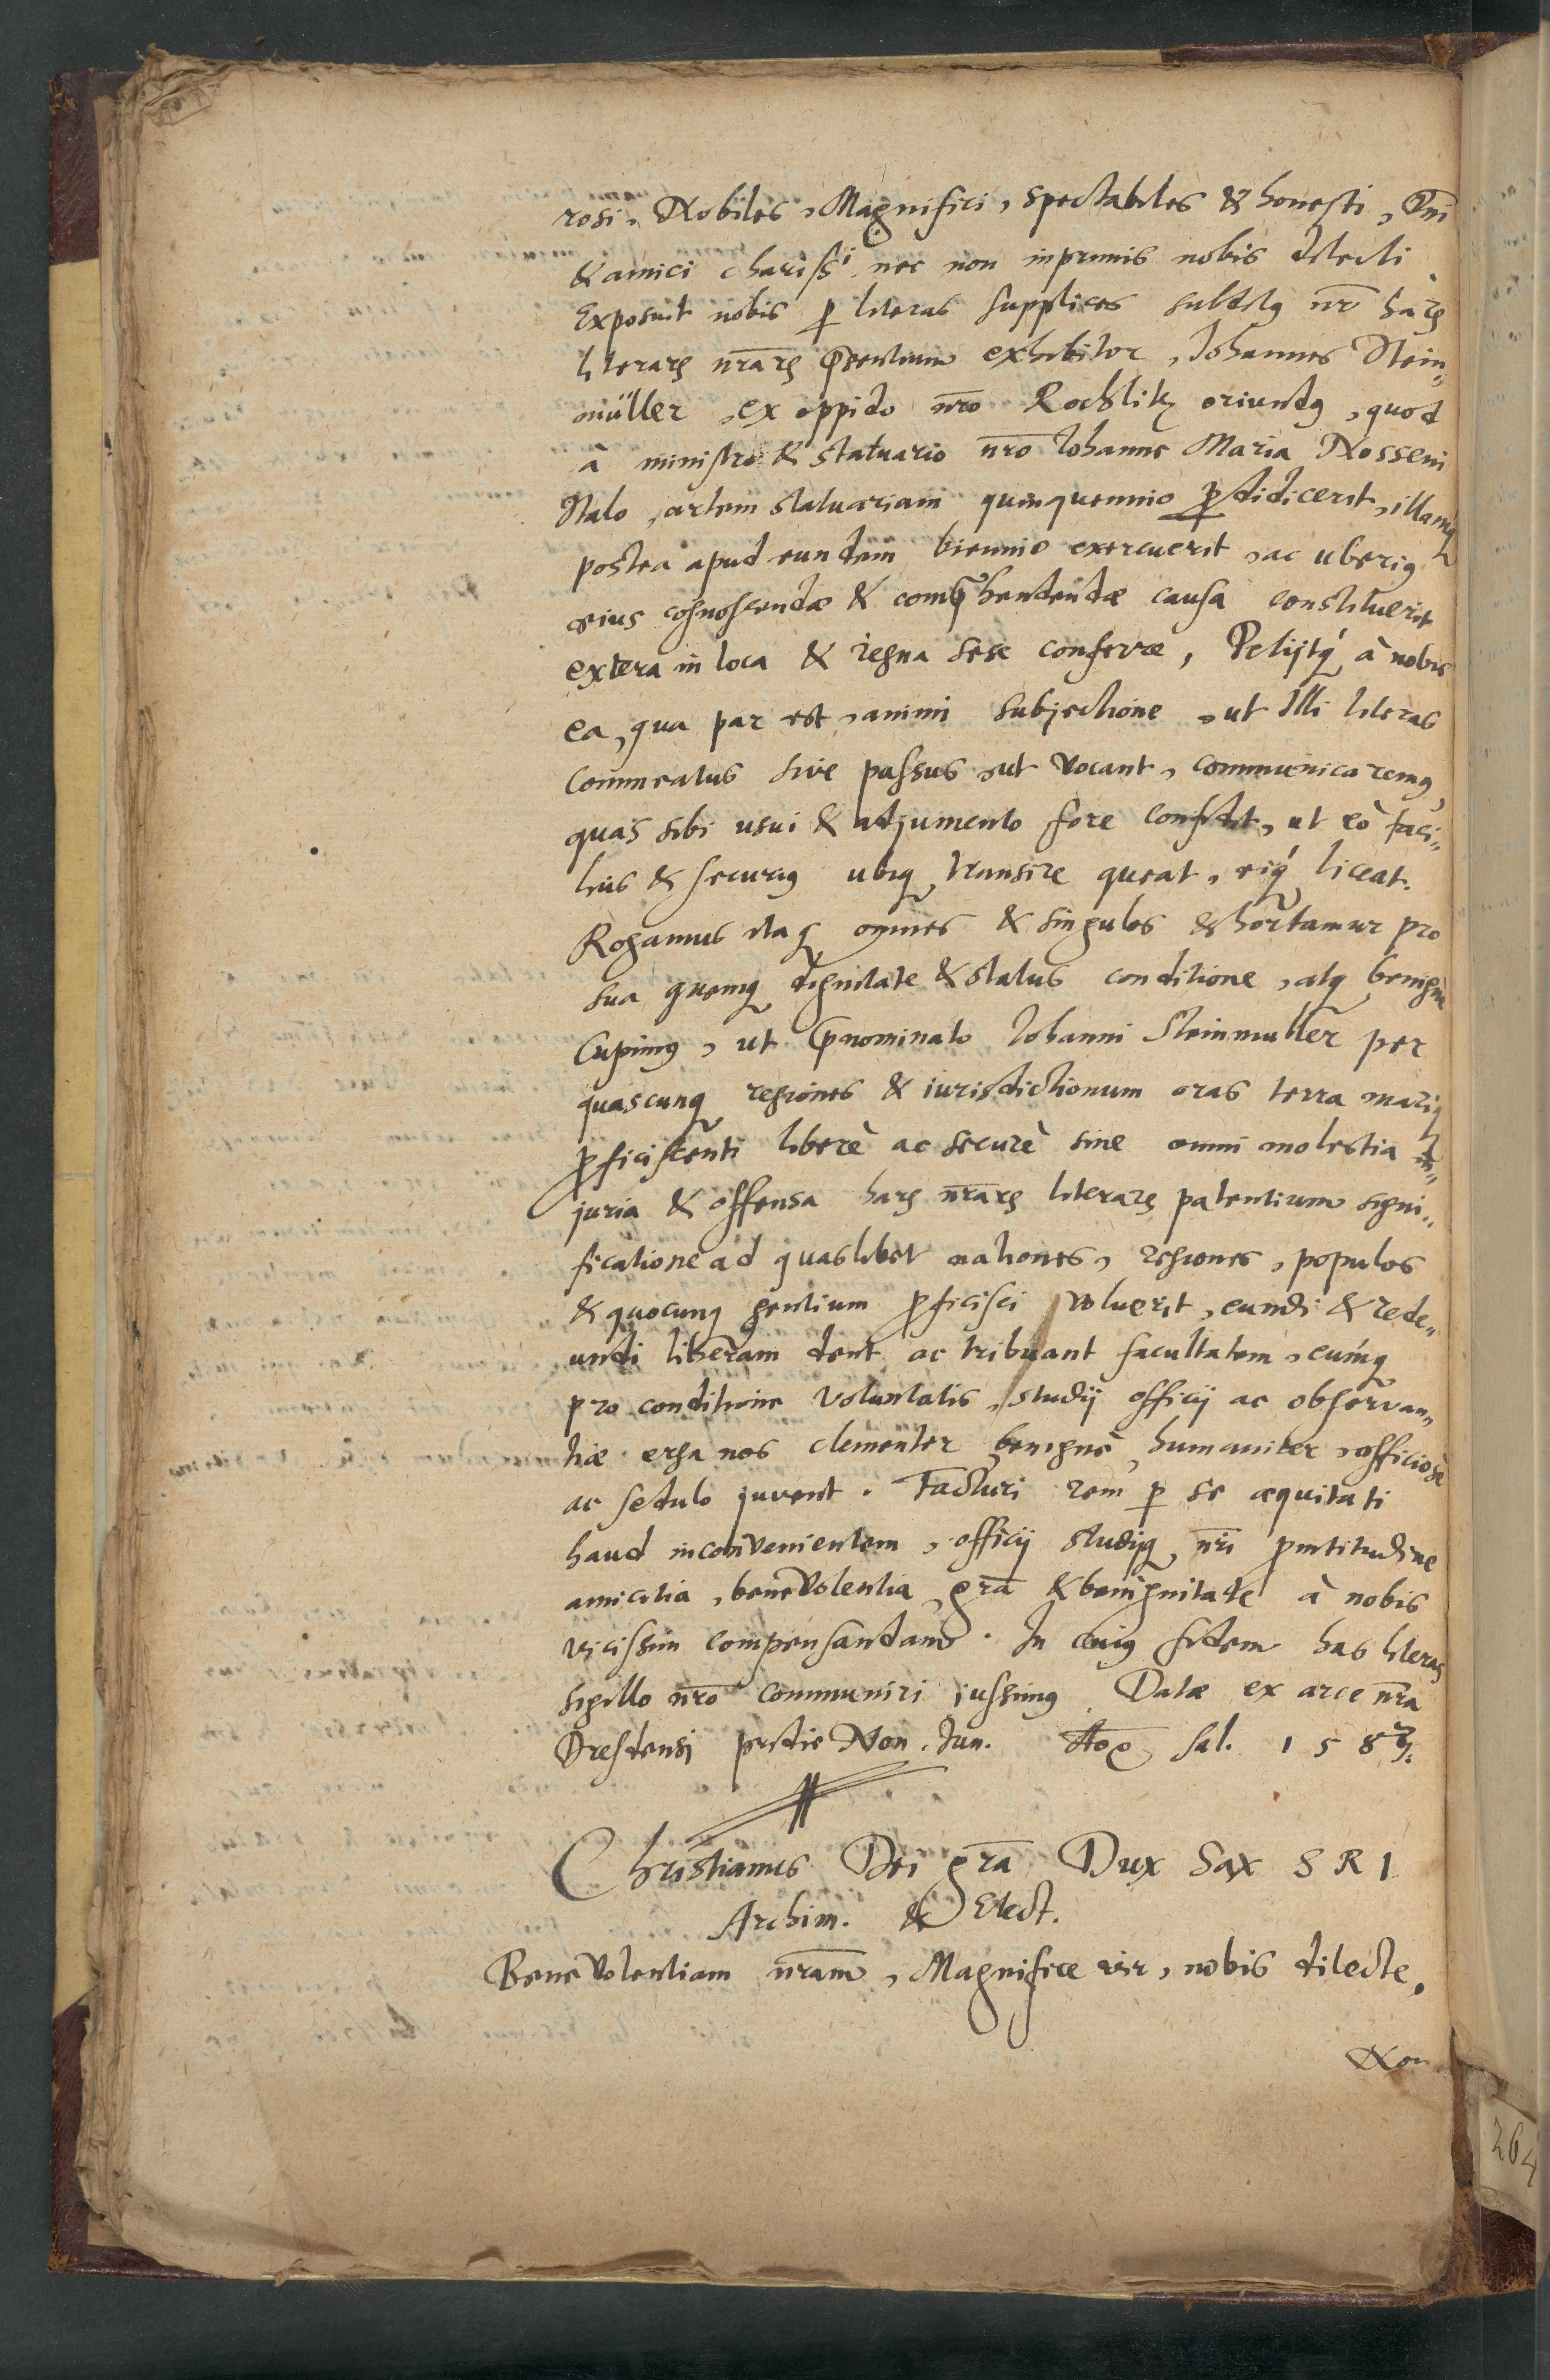 rosi, Nobiles, Magnifici, spectabiles & honesti, Dn̄i
& amici charissi. nec non inprimis nobis dilecti.
Exposuit nobis ꝑ literas supplices subdit9 nr̄ haꝝ
literaꝝ nr̄aꝝ p̄sentium exhibitor, Iohannes Stein„
müller, ex oppido nr̄o Rochlitz oriund9, quod
à ministro & statuario nr̄o Iohanne Maria Nosseni
Italo, artem statuariam quinquennio ꝑdidicerit, illamq;
postea apud eundem biennio exercuerit, ac uberi9
eius cognoscendæ & comp̄hendendæ causa constituerit
extera in loca & regna sese conferre, Petijtq́; à nobis
ea, qua par est, animi subjectione, ut Illi literas
commeatus sive passus, ut vocant, communicarem9,
quas sibi usui & adjumento fore confidit, ut eò faci„
lius & securi9 ubiq; transire queat, eiq́; liceat.
Rogamus itaq; omnes & singulos & hortamur pro
sua quemq; dignitate & status conditione, atq; benignè
Cupim9, ut p̄nominato Iohanni Steinmuller per
quascunq; regiones & iurisdictionum oras terra mariq;
ꝓficiscenti liberè ac securè sine omni molestia in„
juria & offensa haꝝ nr̄aꝝ literaꝝ patentium signi„
ficatione ad quaslibet nationes, regiones, populos
& quocunq; gentium ꝓficisci voluerit, eundi & rede„
undi liberam dent ac tribuant facultatem, eumq́;
pro conditione voluntatis, studij officij ac observan„
tiæ erga nos clementer, benignè, humaniter, officiosè
ac sedulo juvent. Facturi rem ꝑ se æquitati
haud inconvenientem, officij studijq; nr̄i ꝓmtitudine
amicitia, benevolentia, gr̄a & benignitate à nobis
vicissim compensandam. In cuig fidem has literas
sigillo nr̄o communiri jussim9. Datæ ex arce nr̄a
Dresdensi pridie Non. Iun. Ao sal. 1587.
Christianus Dei gr̄a Dux Sax S R I
Archim. & Elect.
Benevolentiam nr̄am, Magnifice vir, nobis dilecte.
Non
264